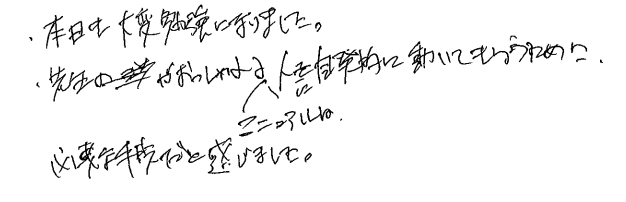 ・本日も大変勉強になりました。
・先生がおっしゃる、人に自発的に動いてもらうために、
マニュアルは、
必要な手段だと感じました。